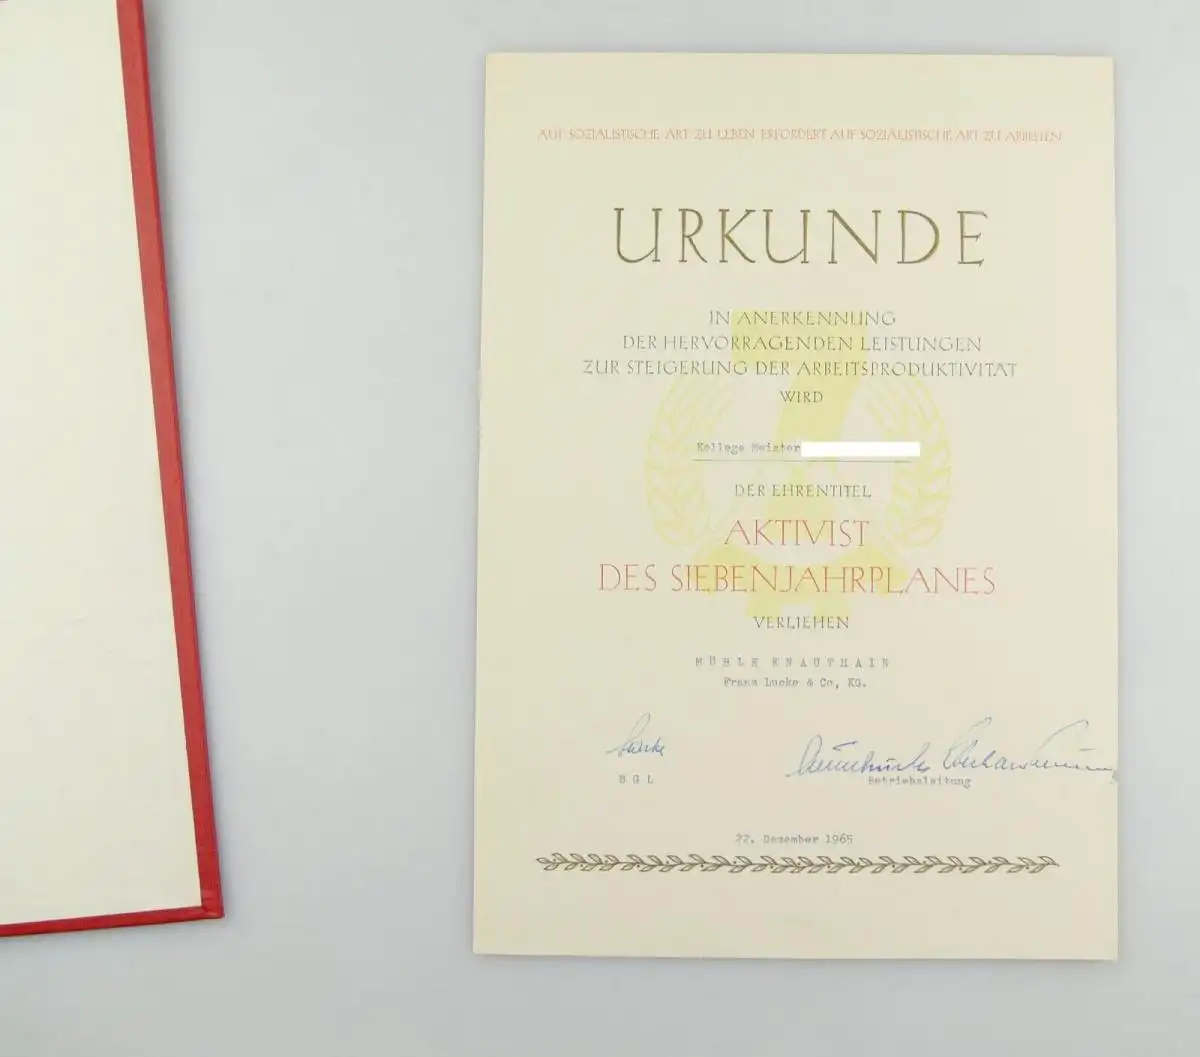 AUF SOZIALISTISCHE ART ZU LEBEN ERFORDERT AUF SOZIALISTISCHE ART ZU ARBEITEN
URKUNDE
IN ANERKENNUNG
DER HERVORRAGENDEN LEISTUNGEN
ZUR STEIGERUNG DER ARBEITSPRODUKTIVITÄT
WIRD
Kollege Meister
DER EHRENTITEL
AKTIVIST
DES SIEBENJAHRPLANES
VERLIEHEN
MÜHLE KNAUTHAIN
Franz Lucke & Co, KG.
BGL
Betriebsleitung
22. Dezember 1965